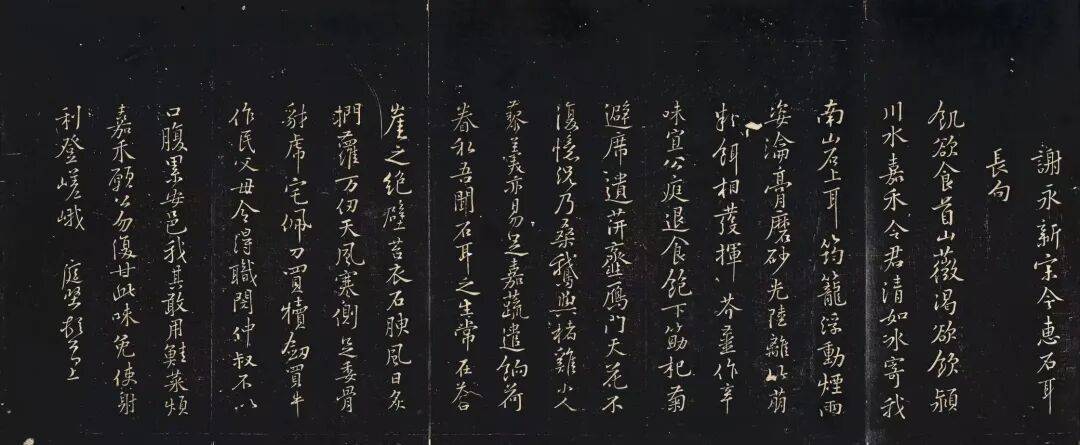 謝永新宗令惠石耳
長句
飢欲食首山薇渴欲飲潁
川水嘉禾令君清如冰寄我
南山石上耳筠籠浮動煙雨
姿瀹膏磨砂光陸離竹萌
粉餌相發揮芥薑作辛
味宜公庭退食飽下筯杞菊
避席遺萍虀雁門天花不
復憶況乃桑鵝與楮雞小人
藜羹亦易足嘉蔬遣餉荷
眷私吾聞石耳之生常在蒼
崖之絕壁苔衣石腴風日炙
捫蘿万仞天風寒側足委骨
豺虎宅佩刀買犢劔買牛
作民父母今得職閔仲叔不以
口腹累安邑我其敢用鮭菜煩
嘉禾願公勿復甘此味免使射
利登嵯峨 庭堅頓首上